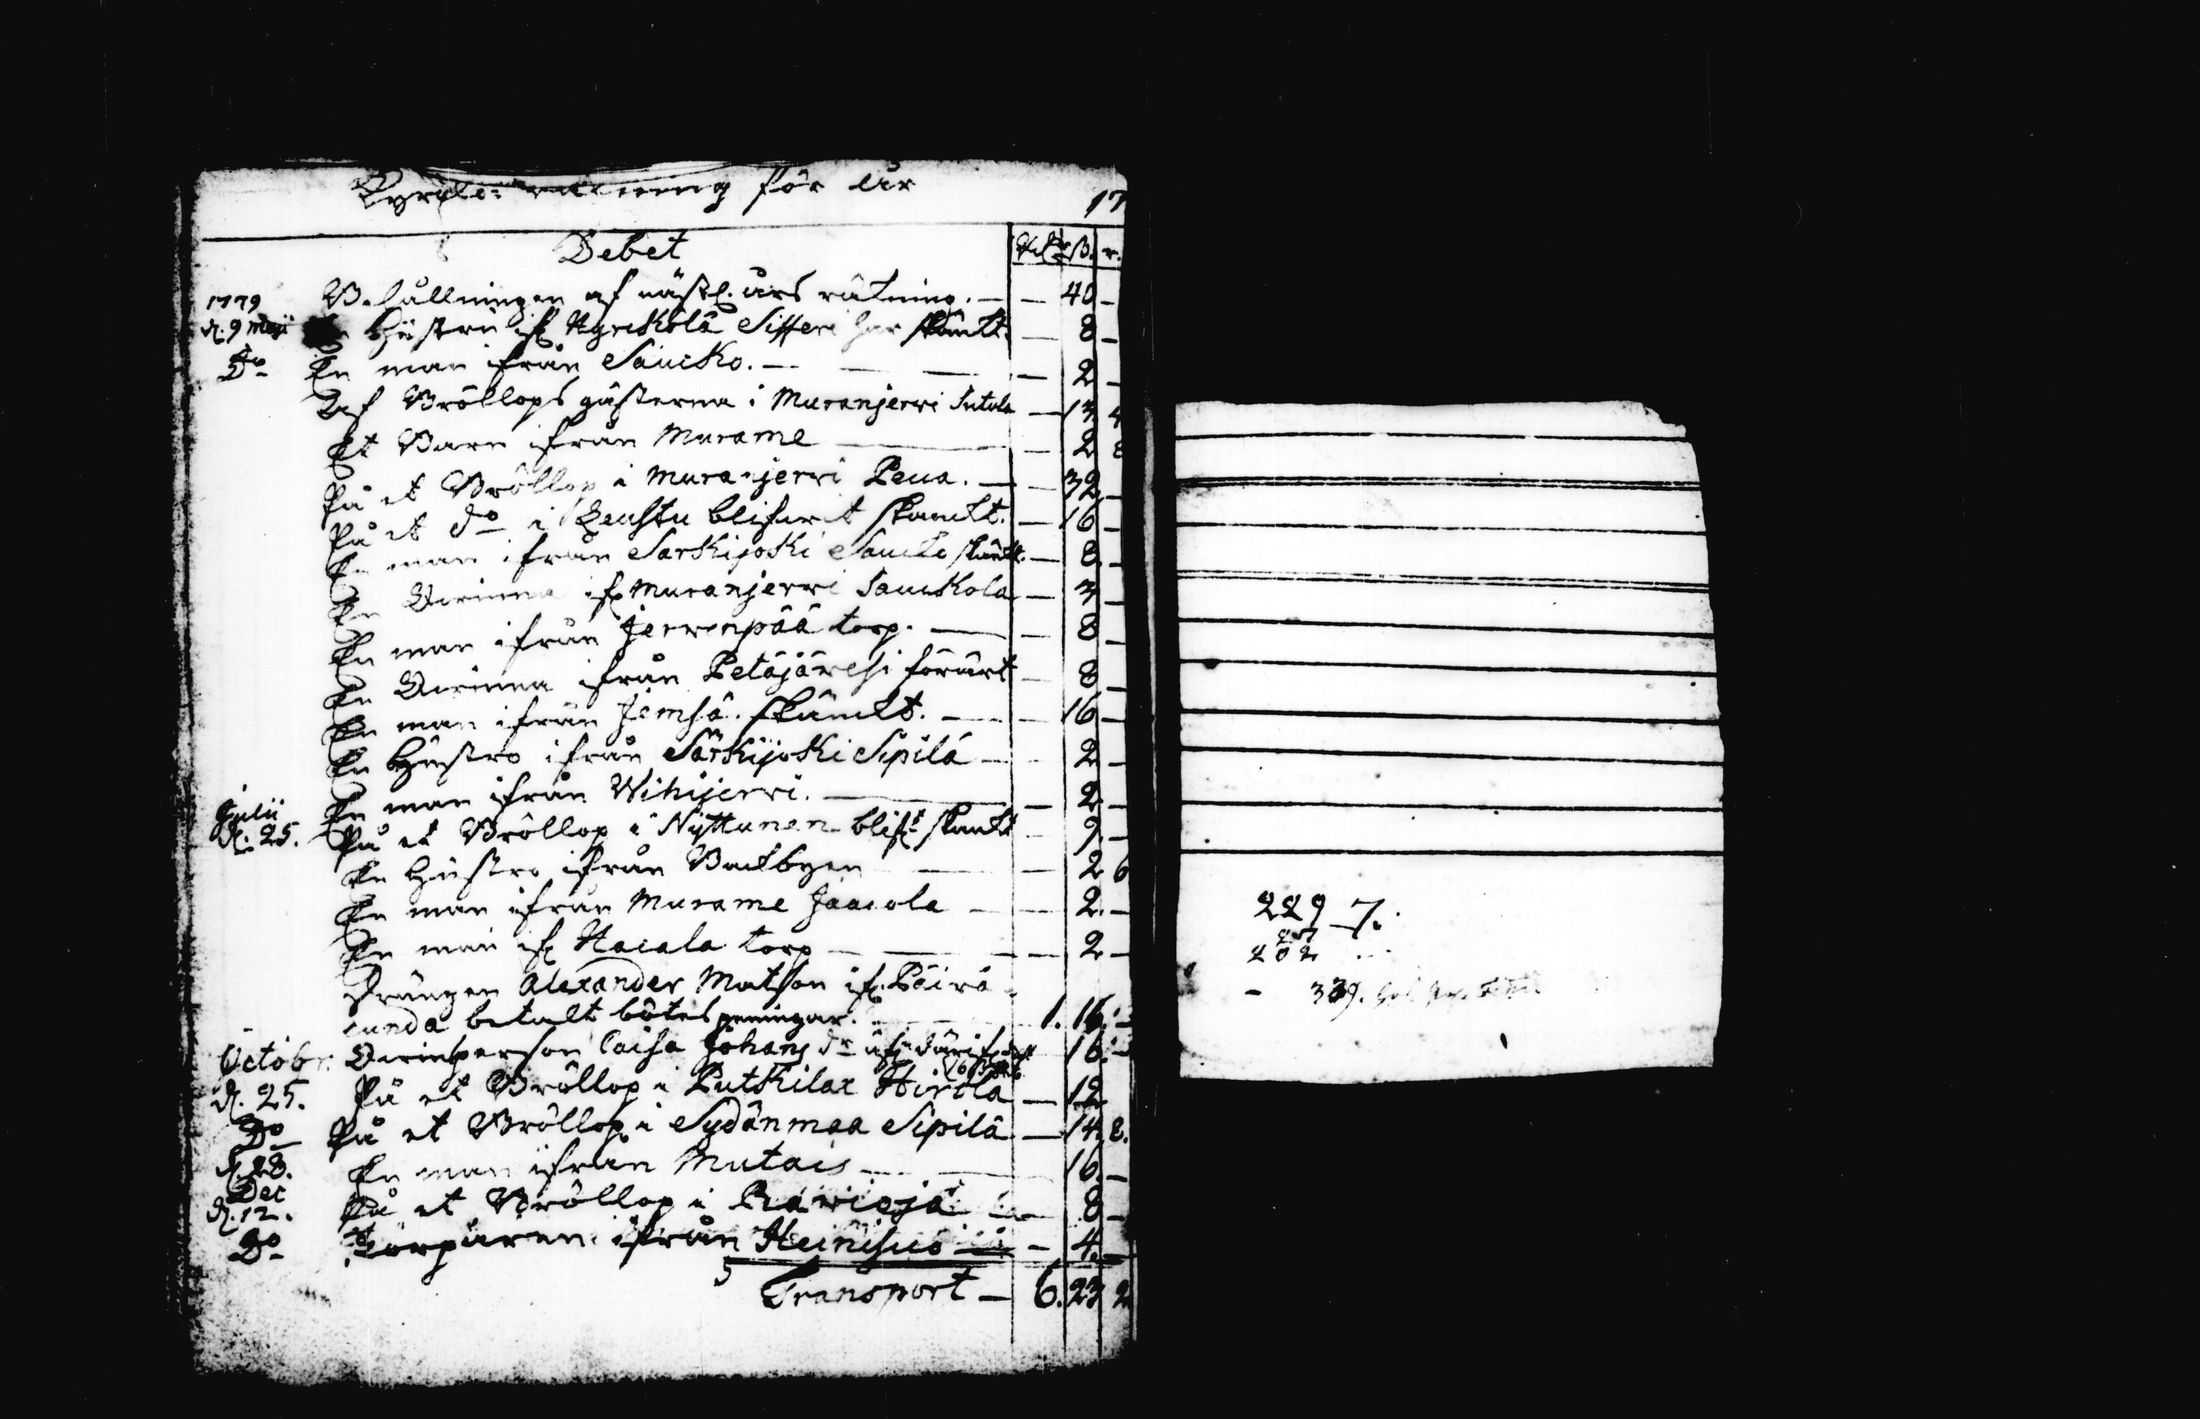 Kyrcko räckning för År 17
Debet Rdr ß. r.
1779 Behållningen af nästl. års räkning. — — 40 —
d. 9 Maji En Hustru ifr. Yrickolä Sifferi har skänkt — 8 —
Do En man ifrån Saucko. — — 2 —
Af Bröllops gästerna i Muranjerwi Intola — 13 4
Et Barn ifrån Murame — — 2 8
På et Bröllop i Muranjerwi Peua. — — 32 —
På et do i Leustu blifwit skänckt. — 16 —
En man ifrån Sarkijoki Saucko skänkt. — 8 —
En Qwinna ifr. Muranjerwi Sauckola — 4 —
En man ifrån Jerwenpää torp. — — 8 —
En Qwinna ifrån Petäjäwesi förärt — 8 —
En man ifrån Jemsä skänckt. — — 16 —
En Hustro ifrån Särkijoki Sipilä — — 2 —
En man ifrån Wihijerwi. — — 2 —
Julii d. 25. På et Bröllop i Nyttunen blifit skänkt — 9. —
En Hustro ifrån Backbyen — — 2 6
En man ifrån Murame Jaacola — — 2. —
En man ifr. Hacala torp — — 2 —
Drängen Alexander Matson ifr. Päirä
cunda betalt bötes penningar. 1. 16. —
Octobr. Qwinsperson Caisa Johans dr 16. —
d. 25. På et Bröllop i Putkilax Hirola — 12
Do På et Bröllop i Sydänmaa Sipilä — 14. 8.
d. 28. En man ifrån Mutais — — 16 —
Dec d. 12. På et Bröllop i Rawioja — 8 —
Do Torparen ifrån Heinisuo — 4. —
Transport — 6. 23 2
229 7.
202
- 339.